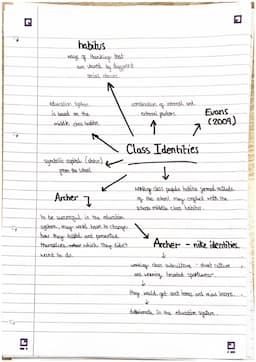 habitus
ways of thinking that
are shared by different
social classes.
education system
is based on the
middle class habitus.
combination of internal and
external factors
Evans
(2009)
Class Identities
symbolic capital (status)
from the school
Archer
working class peoples habitus formed outside
of the school may conflict with the
schools middle class habitus.
to be successful in the education
system, may would have to change
how they talked and presented
themselves which they didn't
want to do.
Archer - nike identities
working class subculture - street culture
and wearing branded sportswear.
they would get sent home and miss lessons.
in the education system.